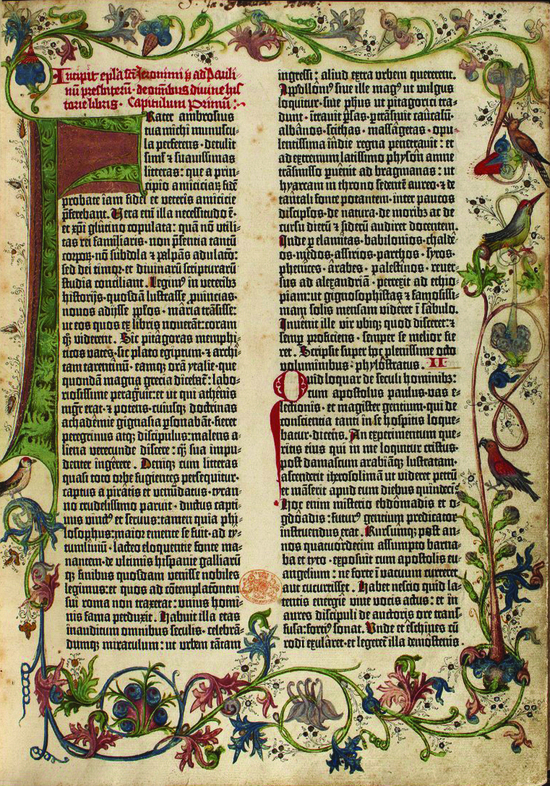 Incipit epla sancti iheronimi ad pauli-
num presbiterum de omnibus divine his-
torie libris · Capitulum Primū:·
Frater ambrosius
tua michi munuscu-
la perferens · detulit
sim̄l ⁊ suavissimas
litteras: que a prin-
cipio amiciciarū fidē
probate iam fidei et veteris amicicie
p̄ferebant. Vera enī illa necessitudo ē·
et xp̄i glutino copulata: quā nō utili-
tas rei familiaris · non p̄sentia tantū
corporū · nō subdola ⁊ palpās adulacō·
sed dei timor · et divinarū scripturarū
studia conciliant. Legim⁹ in veterib⁹
historijs · quosdā lustrasse ꝓvincias·
novos adijsse pp̄los · maria trāsisse:
ut eos quos ex libris noverāt: coram
qꝫ viderent. Sic pitagoras memphi-
ticos vates · sic plato egiptum · ⁊ archi-
tam tarentinū · eamqꝫ orā ytalie · que
quondā magna grecia dicebat̄: labo-
riosissime peragravit: et ut qui athenis
mgr̄ erat · ⁊ potens · cuiusqꝫ doctrinas
achademie gignasia ꝑsonabāt · fieret
peregrinus atqꝫ discipulus: malens a-
liena verecunde discere: qꝫ sua impu-
denter ingerere. Deniqꝫ cum litteras
quasi toto orbe fugientes persequitur·
captus a piratis et venūdatus · tyran-
no crudelissimo paruit · ductus capti-
vus vinct⁹ et servus: tamen quia phi-
losophus: maior emente se fuit · ad ty-
tumliviū · lacteo eloquentie fonte ma-
nantem · de ultimis hispanie galliarū-
qꝫ finibus quosdam venisse nobiles
legimus: et quos ad cōtemplacōnem
sui roma non traxerat: unius homi-
nis fama perduxit. Habuit illa etas
inauditum omnibus seculis · celebrā-
dumqꝫ miraculum: ut urbem tātam
ingressi: aliud extra urbem quererent.
Appollonius sive ille mag⁹ ut vulgus
loquitur · sive ph̄us ut pitagorici tra-
dunt · ītravit ꝑsas · ꝑtrāsivit caucasū·
albanos · scithas · massagetas · opu-
lentissima īdie regna penetravit: et
ad extremum latissimo physon amne
trāsmisso ꝑvenit ad bragmanas: ut
hyarcam in throno sedentē aureo · ⁊ de
tantali fonte potantem · inter paucos
discipulos · de natura · de moribus ac de
cursu dierū ⁊ siderū audiret docentem.
Inde ꝑ elamitas · babilonios · chalde-
os · medos · assirios · parthos · syros·
phenices · arabes · palestinos · rever-
sus ad alexandriā · perrexit ad ethio-
piam: ut gignosophistas ⁊ famosissi-
mam solis mensam videret ī sabulo.
Invenit ille vir ubiqꝫ quod disceret: ⁊
semper proficiens · semper se melior fie-
ret. Scripsit super hoc plenissime octo
voluminibus · phylostratus. II
Quid loquar de seculi hominib⁹:
cum apostolus paulus · vas e-
lectionis · et magister gentium · qui de
conscientia tanti in se hospitis loque-
batur · dicens. An experimentum que-
ritis eius qui in me loquitur cristus·
post damascum arabiāqꝫ lustratam:
ascenderit iherosolimā ut videret petrū
et māserit apud eum diebus quindeci.
Hoc enim misterio ebdomadis et o-
gdoadis: futur⁹ gentium predicator
instruendus erat. Rursumqꝫ post an-
nos quatuordecim assumpto barna-
ba et tyto · exposuit cum apostolis e-
vangelium: ne forte ī vacuum curreret
aut cucurrisset. Habet nescio quid la-
tentis energie vive vocis actus: et in
aures discipuli de auctoris ore trans-
fusa: forti⁹ sonat. Unde et eschines cū
rodi exularet · et legeret̄ illa demostenis